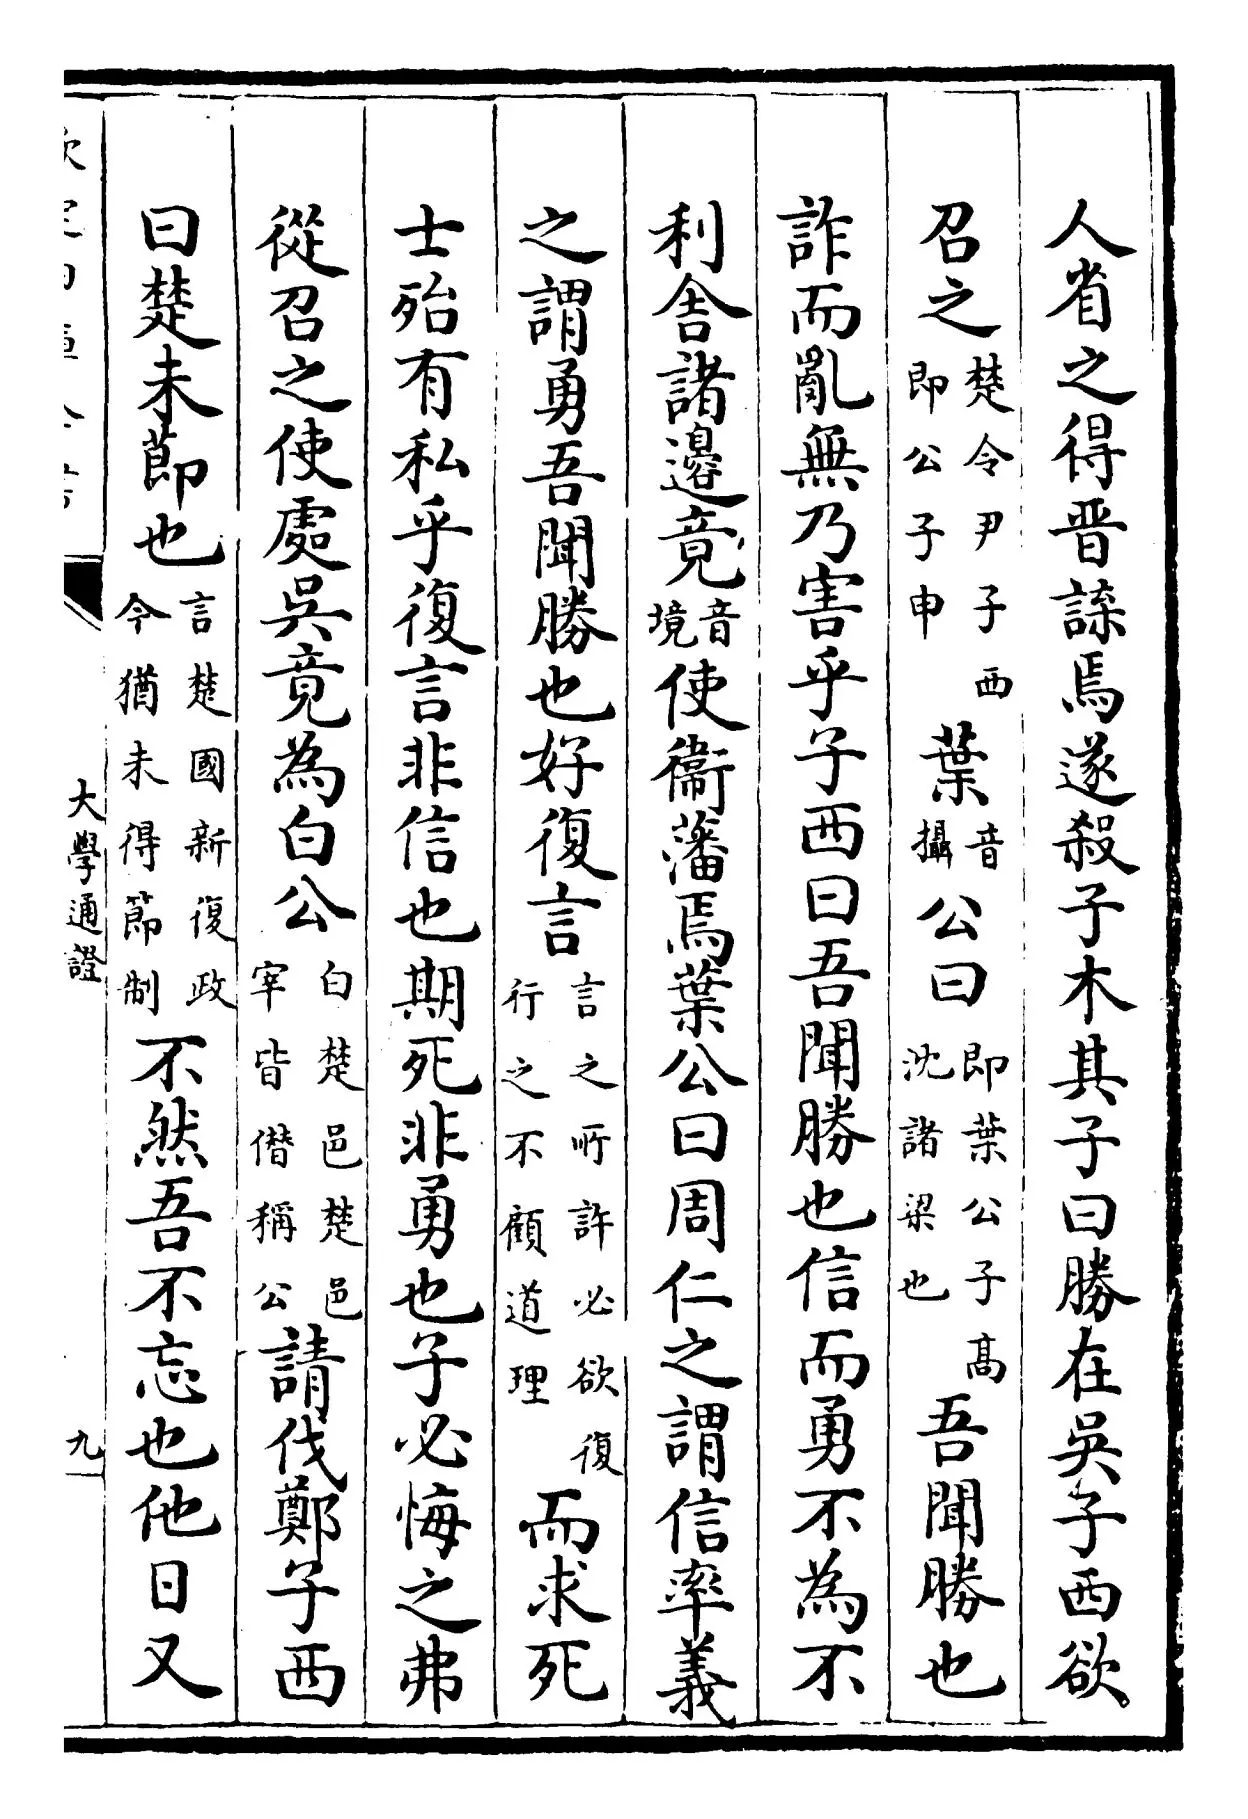 人省之得晉諜焉遂殺子木其子曰勝在吳子西欲
召之楚令尹子西即公子申葉音攝公曰即葉公子高沈諸梁也吾聞勝也
詐而亂無乃害乎子西曰吾聞勝也信而勇不為不
利舍諸邊竟音境使衛藩焉葉公曰周仁之謂信率義
之謂勇吾聞勝也好復言言之所許必欲復行之不顧道理而求死
士殆有私乎復言非信也期死非勇也子必悔之弗
從召之使處吳竟為白公白楚邑楚邑宰皆僭稱公請伐鄭子西
曰楚未節也言楚國新復政令猶未得節制不然吾不忘也他日又
大學通證
九